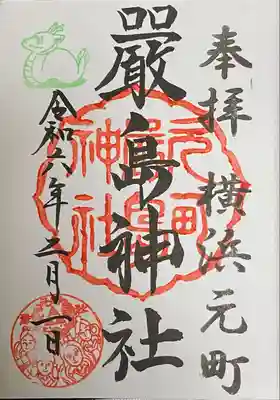 奉拝 横浜元町
嚴島神社
元町嚴島神社
令和六年二月一日